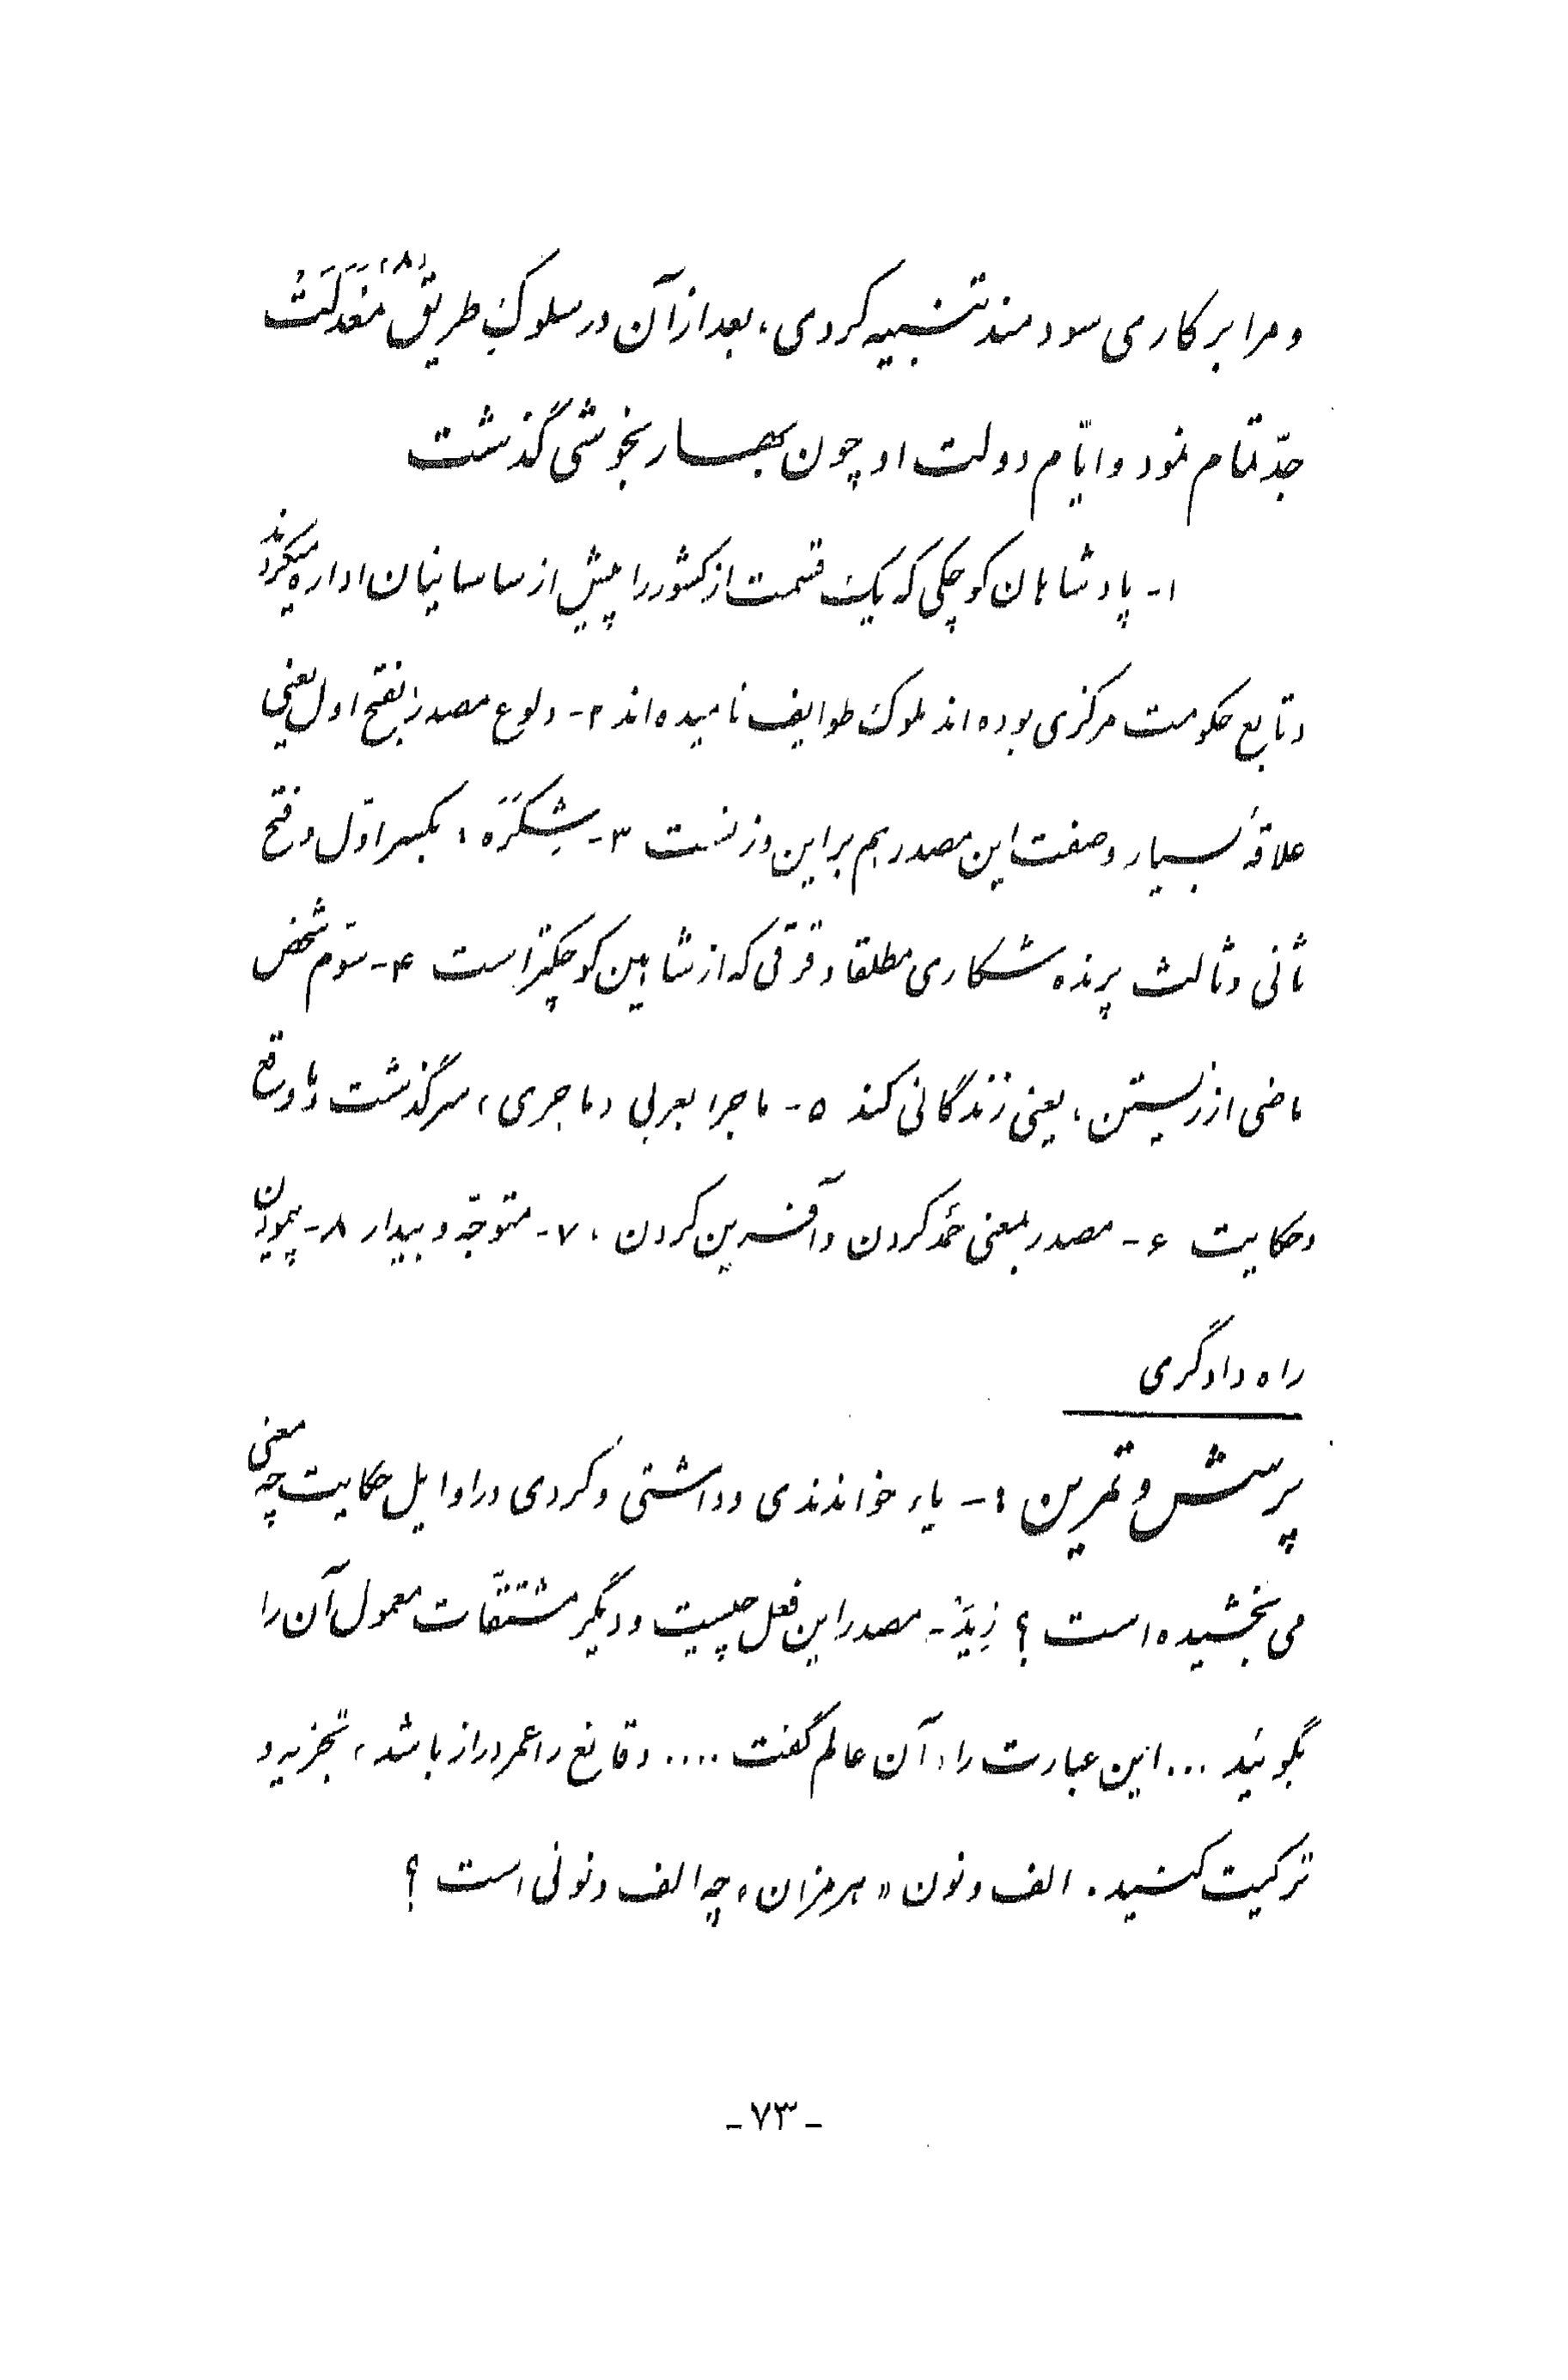 و مرا بر کاری سودمند تنبیه کردی، بعد از آن در سلوک طریق مَعْدَلَتْ (۸)
جدّ تمام نمود و ایّام دولت او چون بهار بخوشی گذشت
۱- پادشاهان کوچکی که یک قسمت از کشور را پیش از ساسانیان اداره میکردند
و تابع حکومت مرکزی بوده‌اند ملوک طوایف نامیده‌اند ۲- ولوع مصدر بفتح اول یعنی
علاقهٔ بسیار و صفت این مصدر هم بر این وزنست ۳- شِکَرَه؛ بکسر اوّل و فتح
ثانی و ثالث پرنده شکاری مطلقا و قرقی که از شاهین کوچکتر است ۴- سوّم شخص
ماضی از زیستن، یعنی زندگانی کند ۵- ماجرا بعربی (ماجری)، سرگذشت و ماوقع
و حکایت ۶- مصدر بمعنی حمد کردن و آفرین کردن، ۷- متوجّه و بیدار ۸- پیمودن
راه دادگری
پرسش و تمرین ؛ - یاء خواندندی و داشتی و کردی در اوایل حکایت چه معنی
می بخشیده است؟ زِیَدْ- مصدر این فعل چیست و دیگر مشتقّات معمول آن را
بگوئید ... این عبارت را، آن عالم گفت .... وقایع را عمر دراز باشد، تجزیه و
ترکیت کنید. الف و نون «هرمزان» چه الف و نونی است؟
-۷۳-